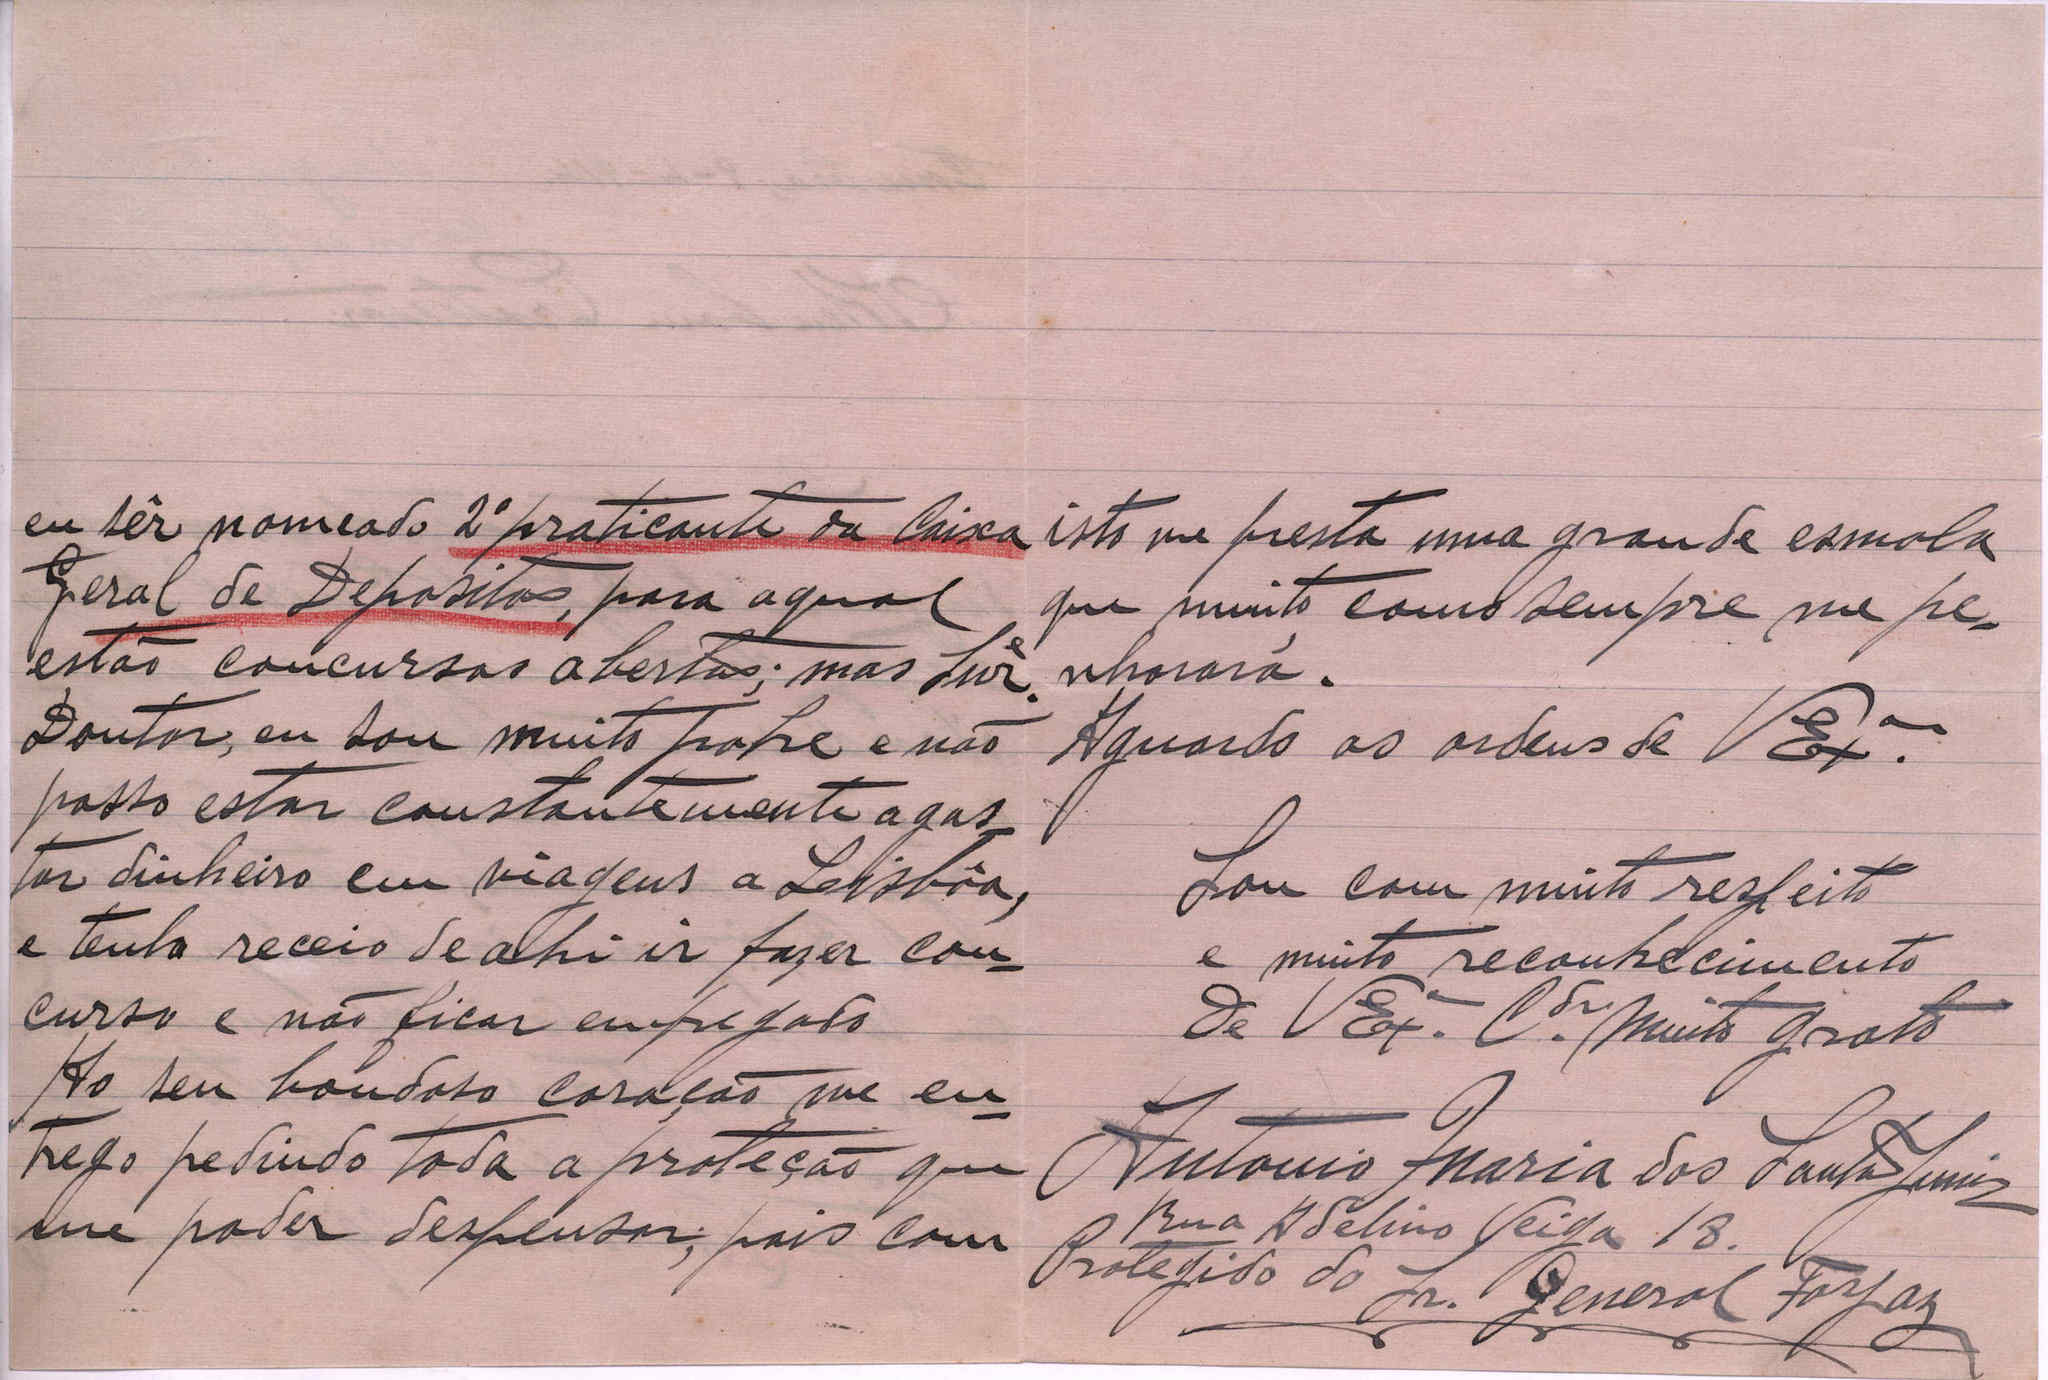 eu sêr nomeado 2º praticante da Caixa
Geral de Depositos, para aqual
estão concursos abertos; mas Snrº.
Doutor, eu sou muito pobre e não
posso estar constantemente a gas
tar dinheiro em viagens a Leisbôa,
e tenho receio de ahi ir fazer con-
curso e não ficar empregado
Ao seu bondoso coração me en-
trego pedindo toda a proteção que
me poder despensar; pois com
isto me presta uma grande esmola
que muito como sempre me pe-
nhorará.
Aguardo as ordens de VExª.
Sou com muito respeito
e muito reconhecimento
De VExª. Cdr. muito grato
Antonio Maria dos Santos Junior
Rua Adelino Veiga 18.
Protegido do Sr. General Forjaz